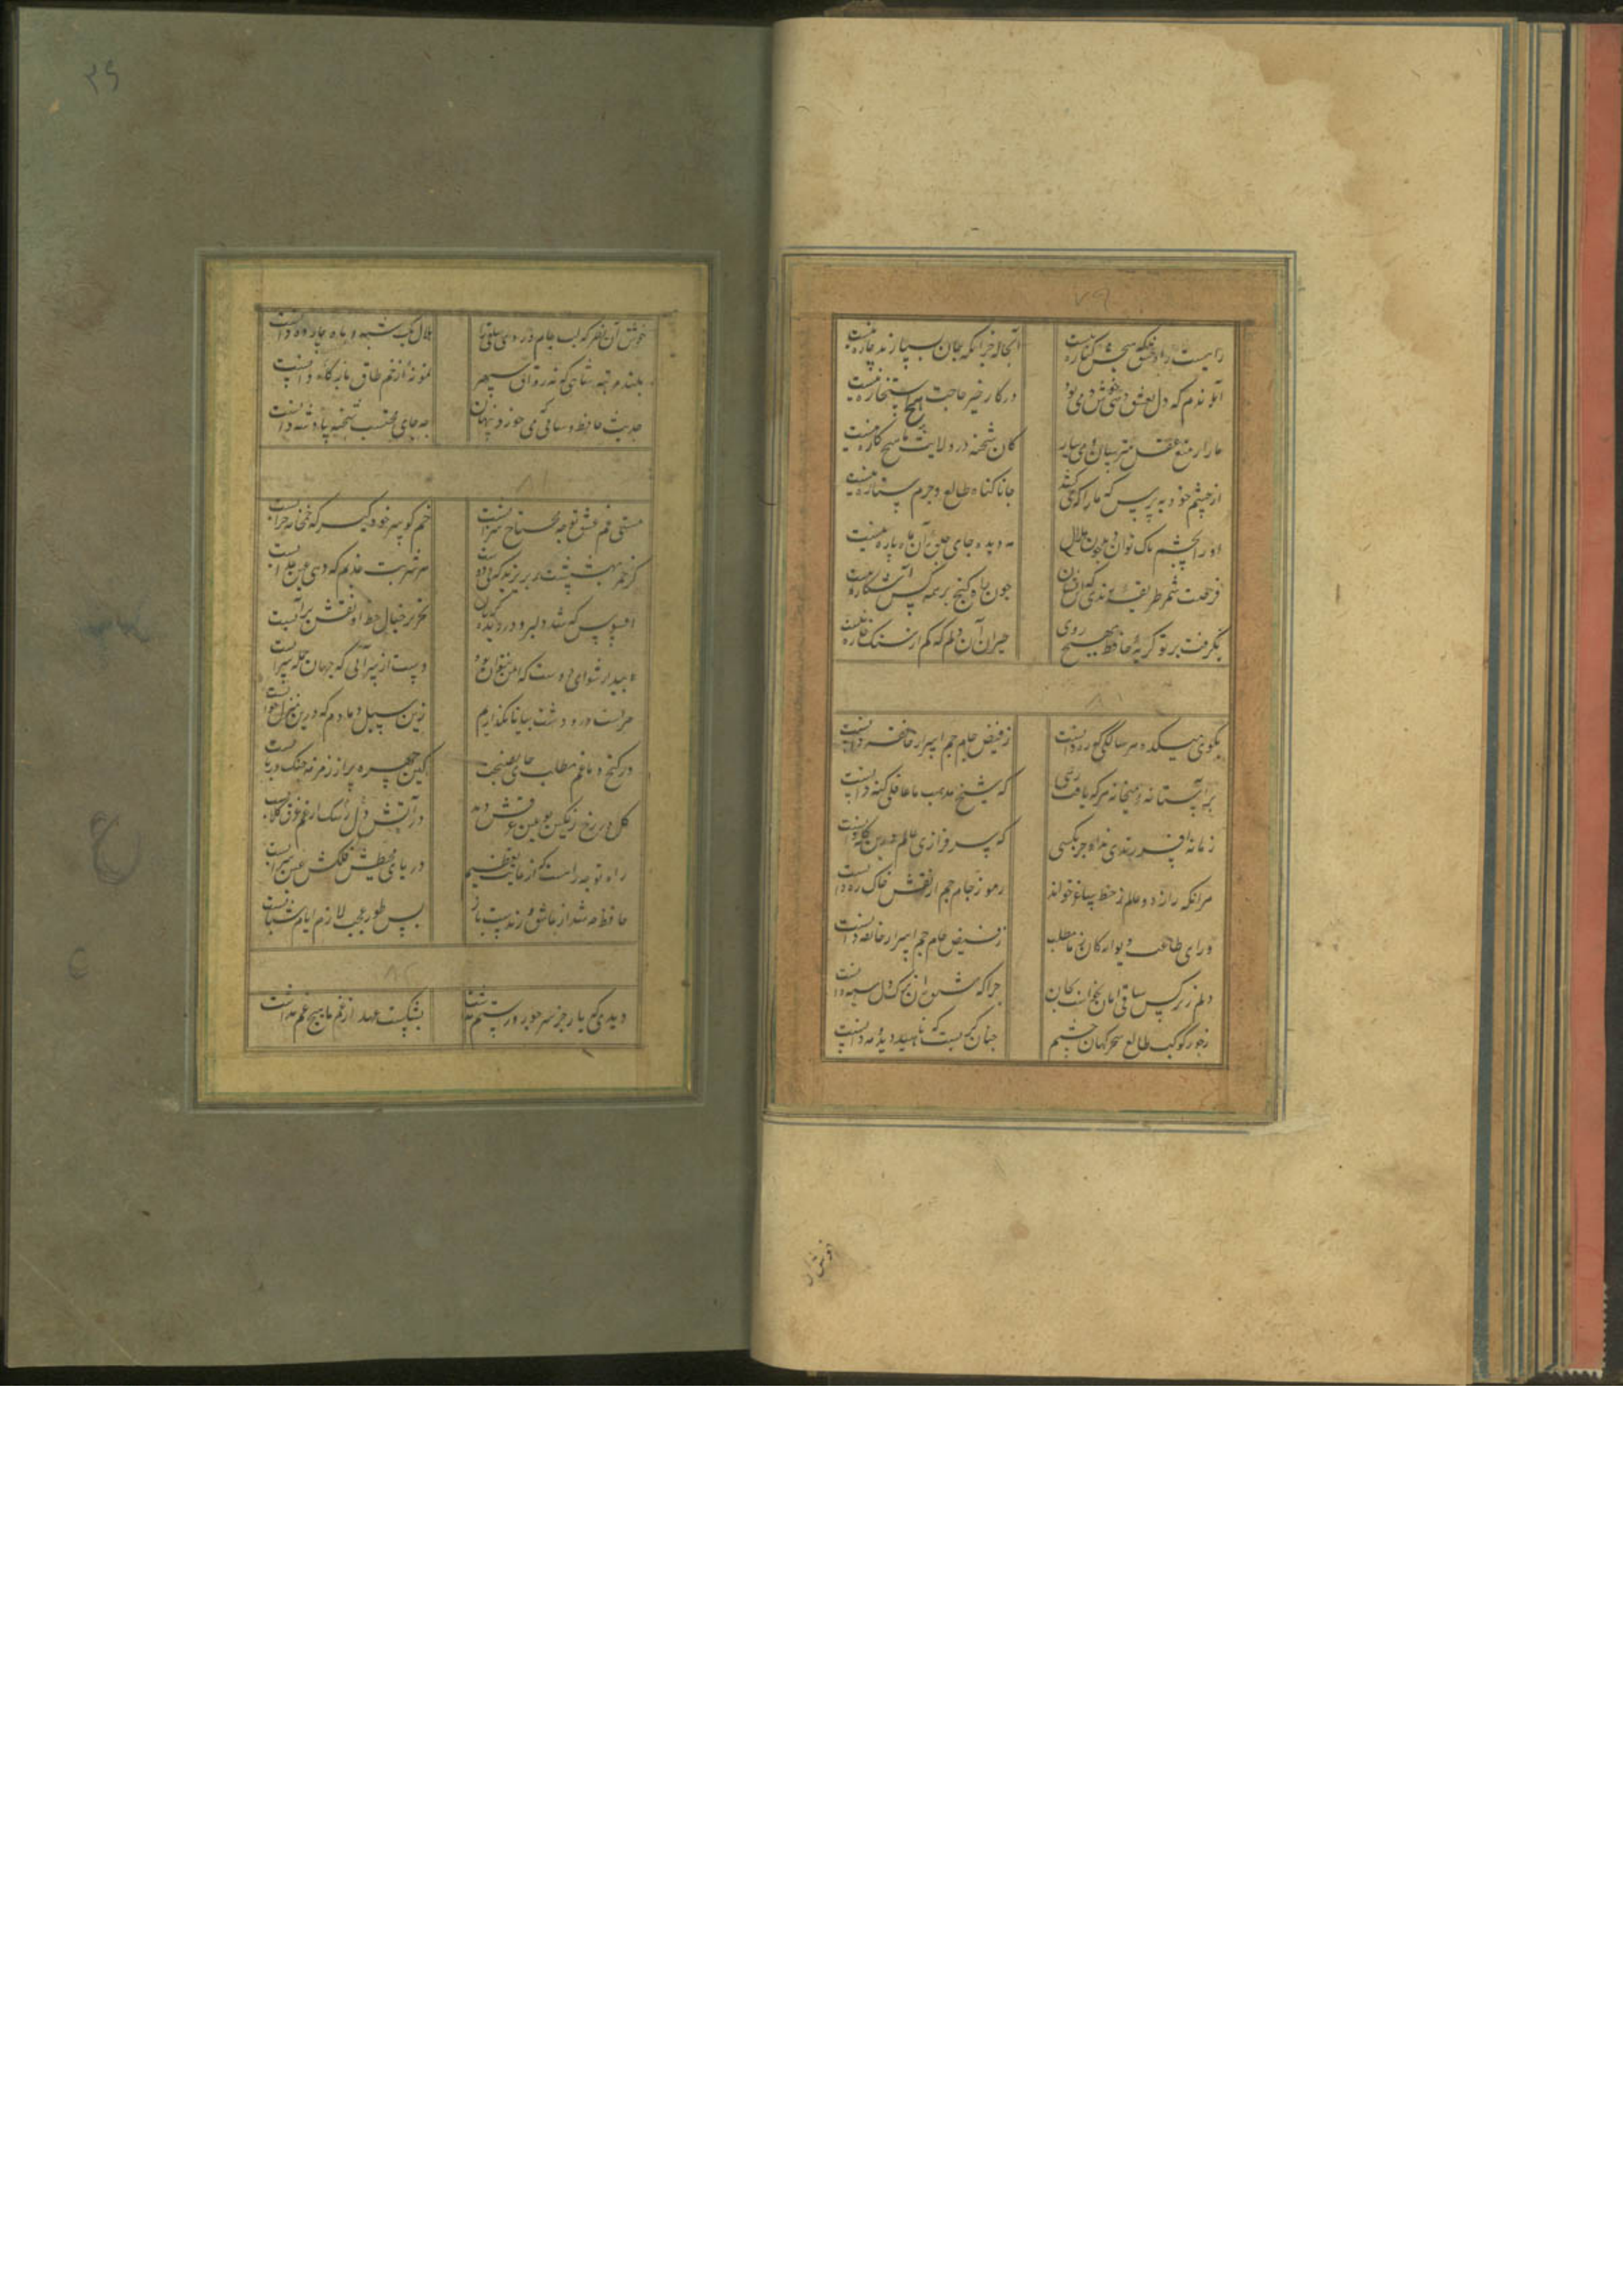 ۷۹
راهیست راه عشق که هیچش کناره نیست آنجا جز آنکه جان بسپارند چاره نیست
آندم که دل بعشق دهی خوش دمی بود در کار خیر حاجت هیچ استخاره نیست
ما را ز منع عقل مترسان و می بیار کان شحنه در ولایت ما هیچ کاره نیست
از چشم خود بپرس که ما را که می کشد جانا گناه طالع و جرم ستاره نیست
او را بچشم پاک توان دید چون هلال هر دیده جای جلوه آن ماه پاره نیست
فرصت شمر طریقه رندی که این نشان چون راه گنج بر همه کس آشکاره نیست
نگرفت در تو گریه حافظ بهیچ روی حیران آن دلم که کم از سنگ خاره نیست
۸۰
بکوی میکده هر سالکی که ره دانست ز فیض جام جم اسرار خانقه دانست
بر آستانه میخانه هر که یافت رهی که شیخ مذهب ما عاقلی گنه دانست
زمانه افسر رندی نداد جز بکسی که سرفرازی عالم درین کله دانست
هر آنکه راز دو عالم ز خط ساغر خواند رموز جام جم از نقش خاک ره دانست
ورای طاعت دیوانگان ز ما مطلب ز فیض جام جم اسرار خانقه دانست
دلم ز نرگس ساقی امان نخواست بجان چرا که شیوه آن ترک دل سیه دانست
ز جور کوکب طالع سحرگهان چشمم چنان گریست که ناهید دید و مه دانست
۲۹
خوش آن نظر که لب جام و روی ساقی را هلال یکشبه و ماه چارده دانست
بلند مرتبه شاهی که نه رواق سپهر نمونه از خم طاق بارگاه دانست
حدیث حافظ و ساقی که می خورد پنهان چه جای محتسب و شحنه پادشه دانست
۸۱
خم گو سر خود گیر که خمخانه خرابست
گر خمر بهشتست بریزید که بی دوست هر شربت عذبم که دهی عین عذابست
افسوس که شد دلبر و در دیده گریان تحریر خیال خط او نقش بر آبست
بیدار شو ای دیده که ایمن نتوان بود زین سیل دمادم که درین منزل خوابست
در کنج دماغم مطلب جای نصیحت کین حجره پر از زمزمه چنگ و ربابست
راه تو چه راهست که از غایت تعظیم دریای محیط فلکش عین سرابست
حافظ چه شد ار عاشق و رندست و نظرباز بس طور عجب لازم ایام شبابست
۸۲
دیدی که یار جز سر جور و ستم نداشت بشکست عهد از غم ما هیچ غم نداشت